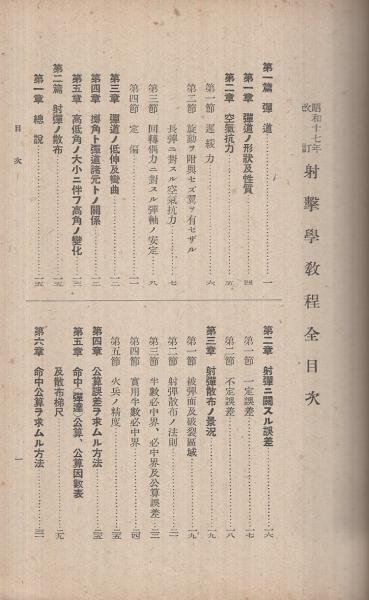 昭和十七年
改訂
射擊學敎程全目次
第一篇 彈道
第一章 彈道ノ形狀及性質……一
第二章 空氣抗力……四
第一節 遲緩力……五
第二節 旋動ヲ附與セズ翼ヲ有セザル
長彈ニ對スル空氣抗力……七
第三節 回轉偶力ニ對スル彈軸ノ安定……八
第四節 定偏……一一
第三章 彈道ノ低伸及彎曲……一二
第四章 擲角ト彈道諸元トノ關係……一三
第五章 高低角ノ大小ニ伴フ高角ノ變化……一五
第二篇 射彈ノ散布
第一章 總說……一五
第二章 射彈ニ關スル誤差……一六
第一節 一定誤差……一七
第二節 不定誤差……一八
第三章 射彈散布ノ景況……一九
第一節 被彈面及破裂區域……一九
第二節 射彈散布ノ法則……二一
第三節 半數必中界、必中界及公算誤差……二三
第四節 實用半數必中界……二四
第五節 火兵ノ精度……二五
第四章 公算誤差ヲ求ムル方法……二五
第五章 命中(彈達)公算、公算因數表
及散布梯尺……二九
第六章 命中公算ヲ求ムル方法……三一
目次
一